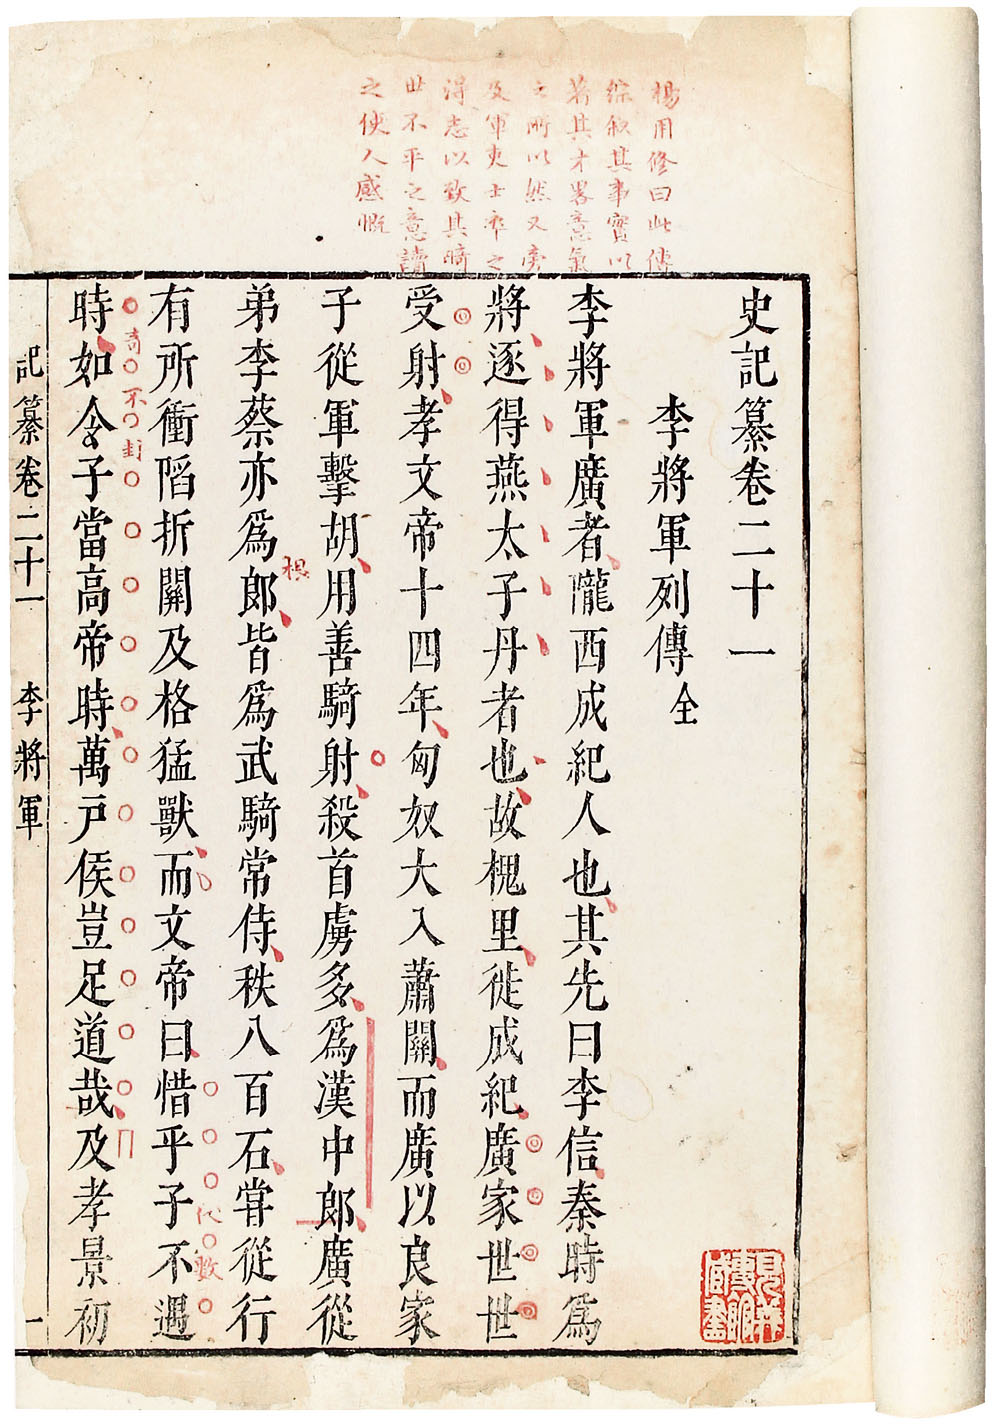 楊用修曰此傳
綜叙其事實以
著其才畧意氣
之所以然又旁
及軍吏士卒之
得志以致其畸
世不平之意讀
之使人感慨
史記纂卷二十一
李將軍列傳全
李將軍廣者隴西成紀人也其先曰李信秦時爲
將逐得燕太子丹者也故槐里徙成紀廣家世世
受射孝文帝十四年匈奴大入蕭關而廣以良家
子從軍擊胡用善騎射殺首虜多爲漢中郎廣從
弟李蔡亦爲郎皆爲武騎常侍秩八百石甞從行
有所衝陷折關及格猛獸而文帝曰惜乎子不遇
代數
時如令子當高帝時萬戶侯豈足道哉及孝景初
奇不封
記纂卷二十一 李將軍 一